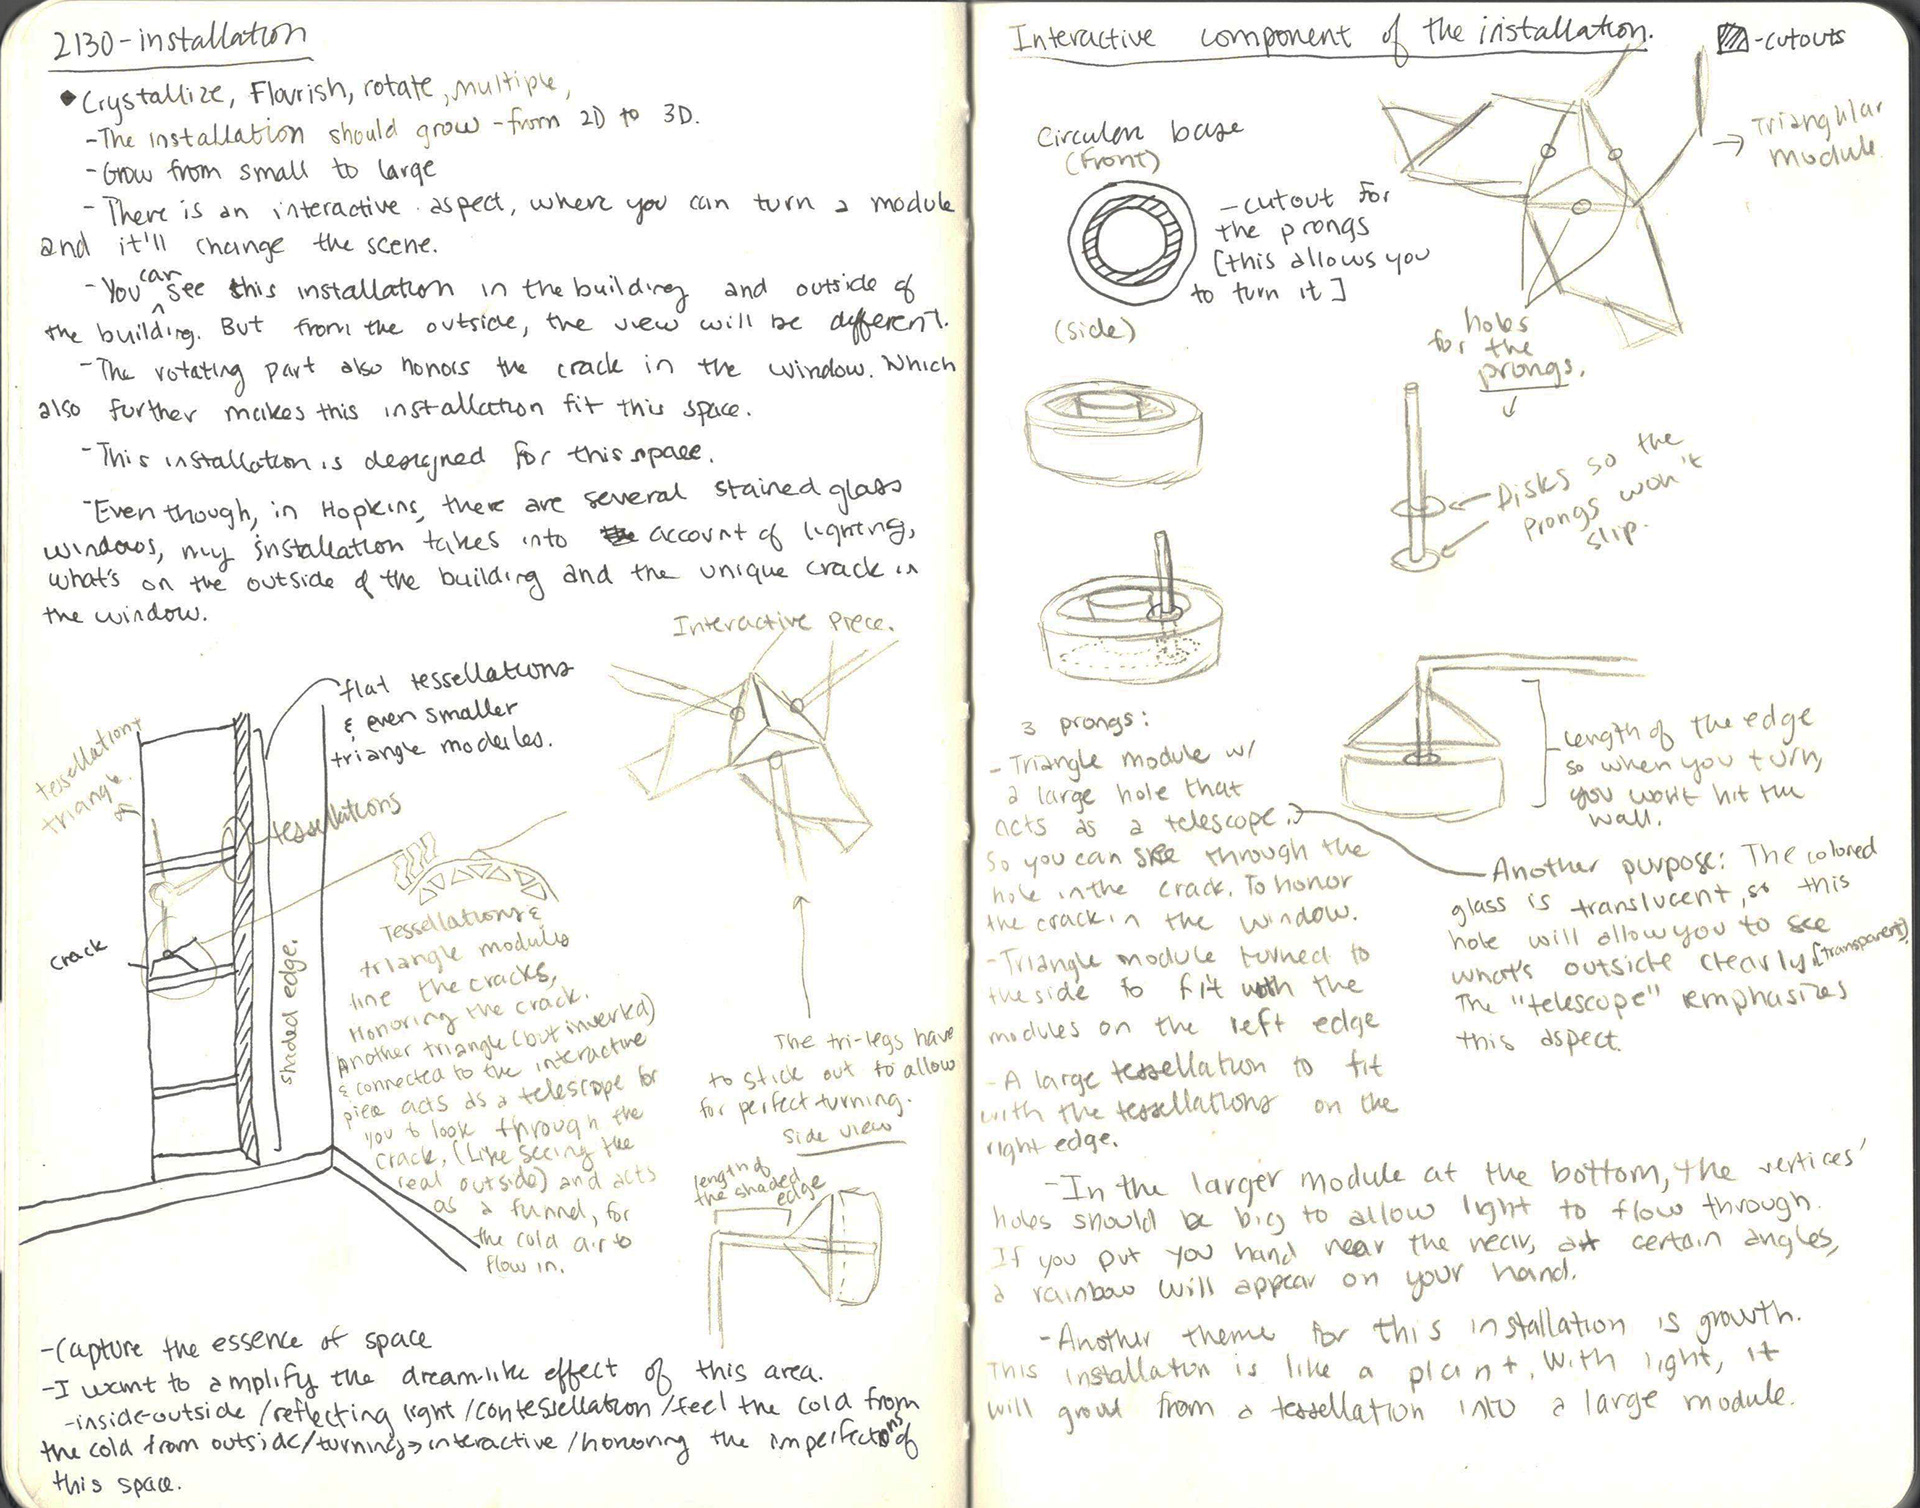 2130-installation
Crystallize, Flourish, rotate, multiple,
-The installation should grow - from 2D to 3D.
-Grow from small to large
-There is an interactive aspect, where you can turn a module
and it'll change the scene.
-You can see this installation in the building and outside of
the building. But from the outside, the view will be different.
-The rotating part also honors the crack in the window. Which
also further makes this installation fit this space.
-This installation is designed for this space.
-Even though, in Hopkins, there are several stained glass
windows, my installation takes into account of lighting,
what's on the outside of the building and the unique crack in
the window.
flat tessellations
& even smaller
triangle modules.
tessellation
triangle.
tessellations
crack
shaded edge.
Tessellations &
triangle modules
line the cracks,
Honoring the crack.
Another triangle (but inverted)
& connected to the interactive
piece acts as a telescope for
you to look through the
crack, (like seeing the
real outside) and acts
as a funnel, for
the cold air to
flow in.
Interactive Piece.
The tri-legs have
to stick out to allow
for perfect turning.
Side view
length of
the shaded
edge
-Capture the essence of space
-I want to amplify the dream-like effect of this area.
-inside-outside/reflecting light/contessellation/feel the cold from
the cold from outside/turning→interactive/honoring the imperfections of
this space.
Interactive component of the installation.
-cutouts
Circular base
(Front)
-cutout for
the prongs
[this allows you
to turn it]
→ Triangular
module
(side)
holes
for the
prongs.
Disks so the
prongs won't
slip.
3 prongs:
-Triangle module w/
a large hole that
acts as a telescope.
So you can see through the
hole in the crack. To honor
the crack in the window.
-Triangle module turned to
the side to fit with the
modules on the left edge
-A large tessellation to fit
with the tessellations on the
right edge.
length of the edge
so when you turn,
you won't hit the
wall.
Another purpose: The colored
glass is translucent, so this
hole will allow you to see
what's outside clearly. [transparent]
The "telescope" emphasizes
this aspect.
-In the larger module at the bottom, the vertices'
holes should be big to allow light to flow through.
If you put you hand near the near, at certain angles,
a rainbow will appear on your hand.
-Another theme for this installation is growth.
This installation is like a plant. With light, it
will grow from a tessellation into a large module.